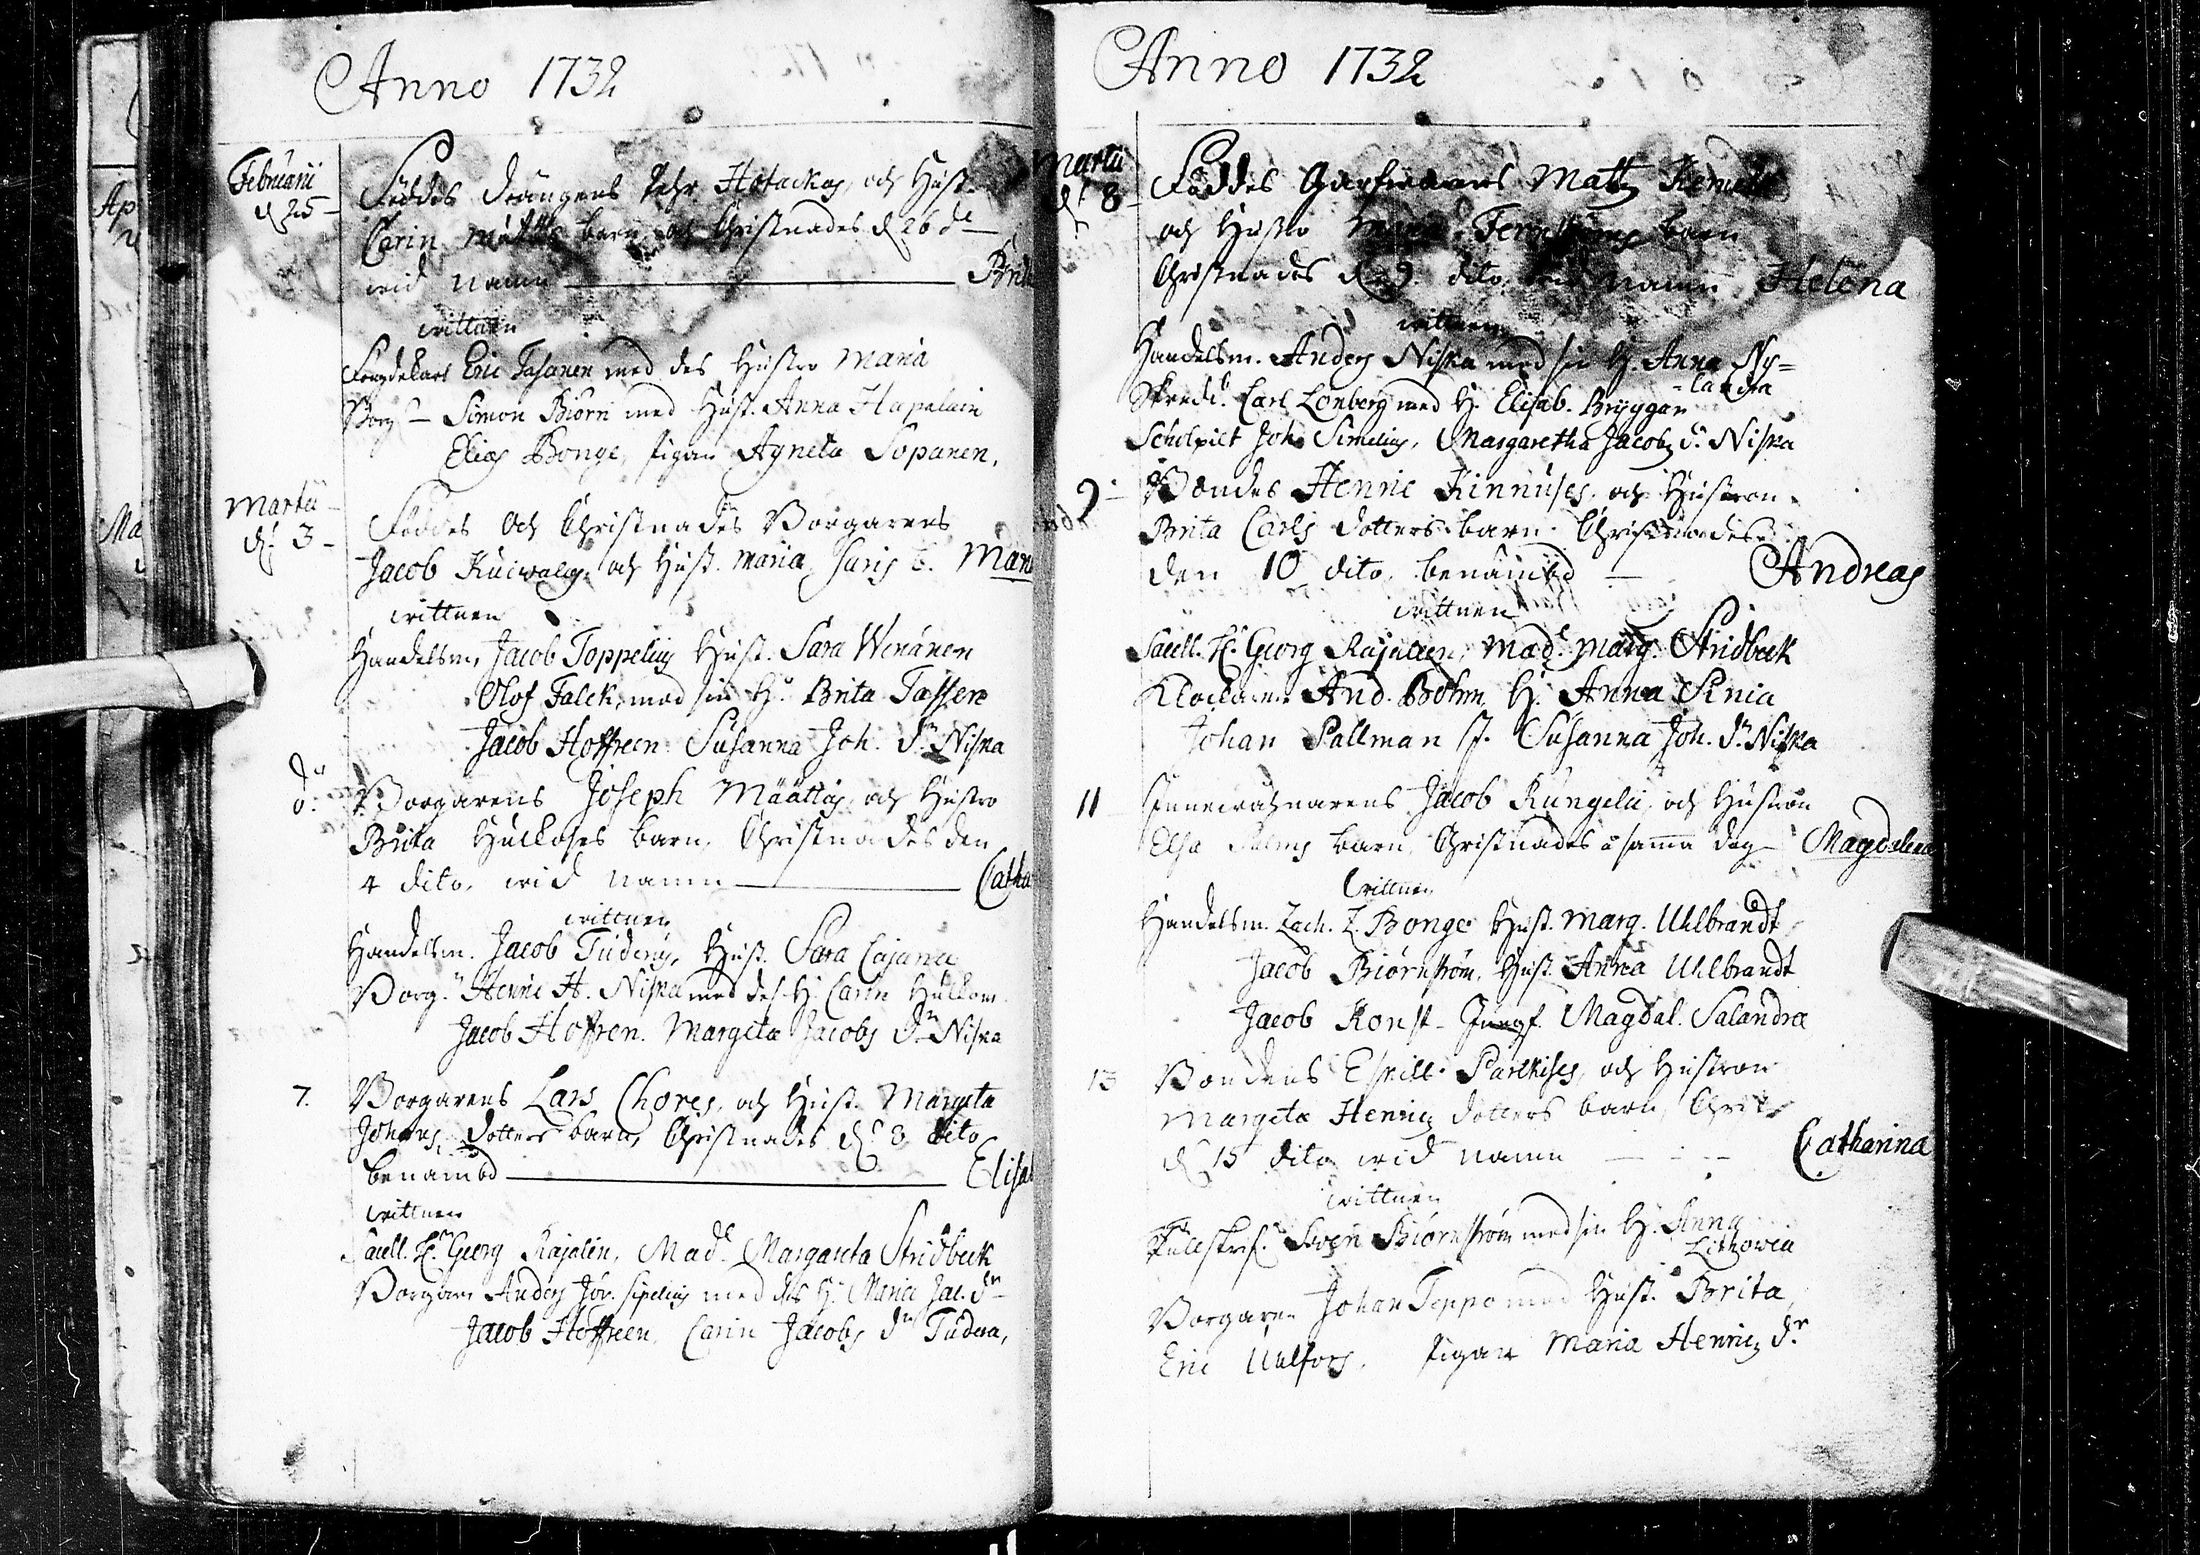 Anno 1732
Februarii
d 25
Föddes Drängens Pehr Hotackas, och Hust.
Carin Matts barn och Christnades d 26 do
wid namn — Brit
wittnen
Eric Tasanen med des Hustro Maria
Borg. Simon Biörn med Hust. Anna Hapalain
Elias Bonge, pigan Agneta Sopanen,
Martii
d. 3
Föddes och Christnades Borgarens
Jacob Kuiwalas och Hust. Maria Juris b. Mari
wittnen
Handelsm. Jacob Toppelius Hust. Sara Wänänen
Olof Falck, med sin H. Brita Tassen
Jacob Hoffreen Susanna Joh. dr Niska
do
Borgarens Joseph Määttäs, och Hustro
Brita Hulkoses barn, Christnades den
4 dito, wid namn — Catha
wittnen
Handelsm. Jacob Tuderus, Hust. Sara Cajana
Borg. Henric H. Niska med des H. Carin Hulkon
Jacob Hoffren. Margeta Jacobs dr Niska
7.
Borgarens Lars Chores, och Hust. Margeta
Johans dotters barn, Christnades d. 8 dito
benämbd — Elisab
wittnen
Sacell. Hr Georg Rajalen, Mad. Margareta Stridbeck
Borgaren Anders Jör. Sipelius med des H. Maria Jac. dr
Jacob Hoffreen, Carin Jacobs dr Tudera,
Anno 1732
Martii
d. 8
Föddes Matts
och Hustro barn
Christnades d. 9 dito, wid namn Helena
wittnen
Handelsm. Anders Niska med sin H. Anna Ny=
=landra
Skredd. Carl Lonberg med H. Elisab. Bryggar
Scholpilt Joh. Simelius, Margaretha Jacobs dr Niska
9
Bondes Henric Kinnuses, och Hustron
Brita Carls dotters barn Christnades
den 10 dito, benämbd — Andreas
wittnen
Sacell. Hr Georg Rajalen, Mad. Marg. Stridbeck
Klockaren And. Böhm, H. Anna Sinia
Johan Pallman J. Susanna Joh. dr Niska
11
Jacob Rungelii, och Hustron
Elsa barn, Christnades samma dag Magdalena
wittnen
Handelsm. Zach. Z. Bonge Hust. Marg. Uhlbrandt
Jacob Biörnström, Hust. Anna Uhlbrandt
Jacob Konst - Jungf. Magdal. Salandra
13
Bondens Eskill Parkises, och Hustron
Margeta Henrics dotters barn, Christ
d 15 dito wid namn — Catharina
wittnen
Tullskrif. Swen Biörnström med sin H. Anna
Lithovia
Borgaren Johan Teppo med Hust. Brita,
Eric Uhlfors, pigan Maria Henrics dr
Ap
Ma